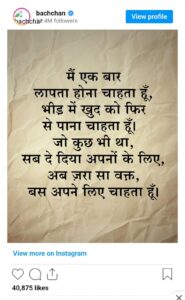 bachchan
bachchan
.4M followers
View profile
मैं एक बार
लापता होना चाहता हूँ,
भीड़ में खुद को फिर
से पाना चाहता हूँ।
जो कुछ भी था,
सब दे दिया अपनों के लिए,
अब ज़रा सा वक़्त,
बस अपने लिए चाहता हूँ।
View more on Instagram
40,875 likes